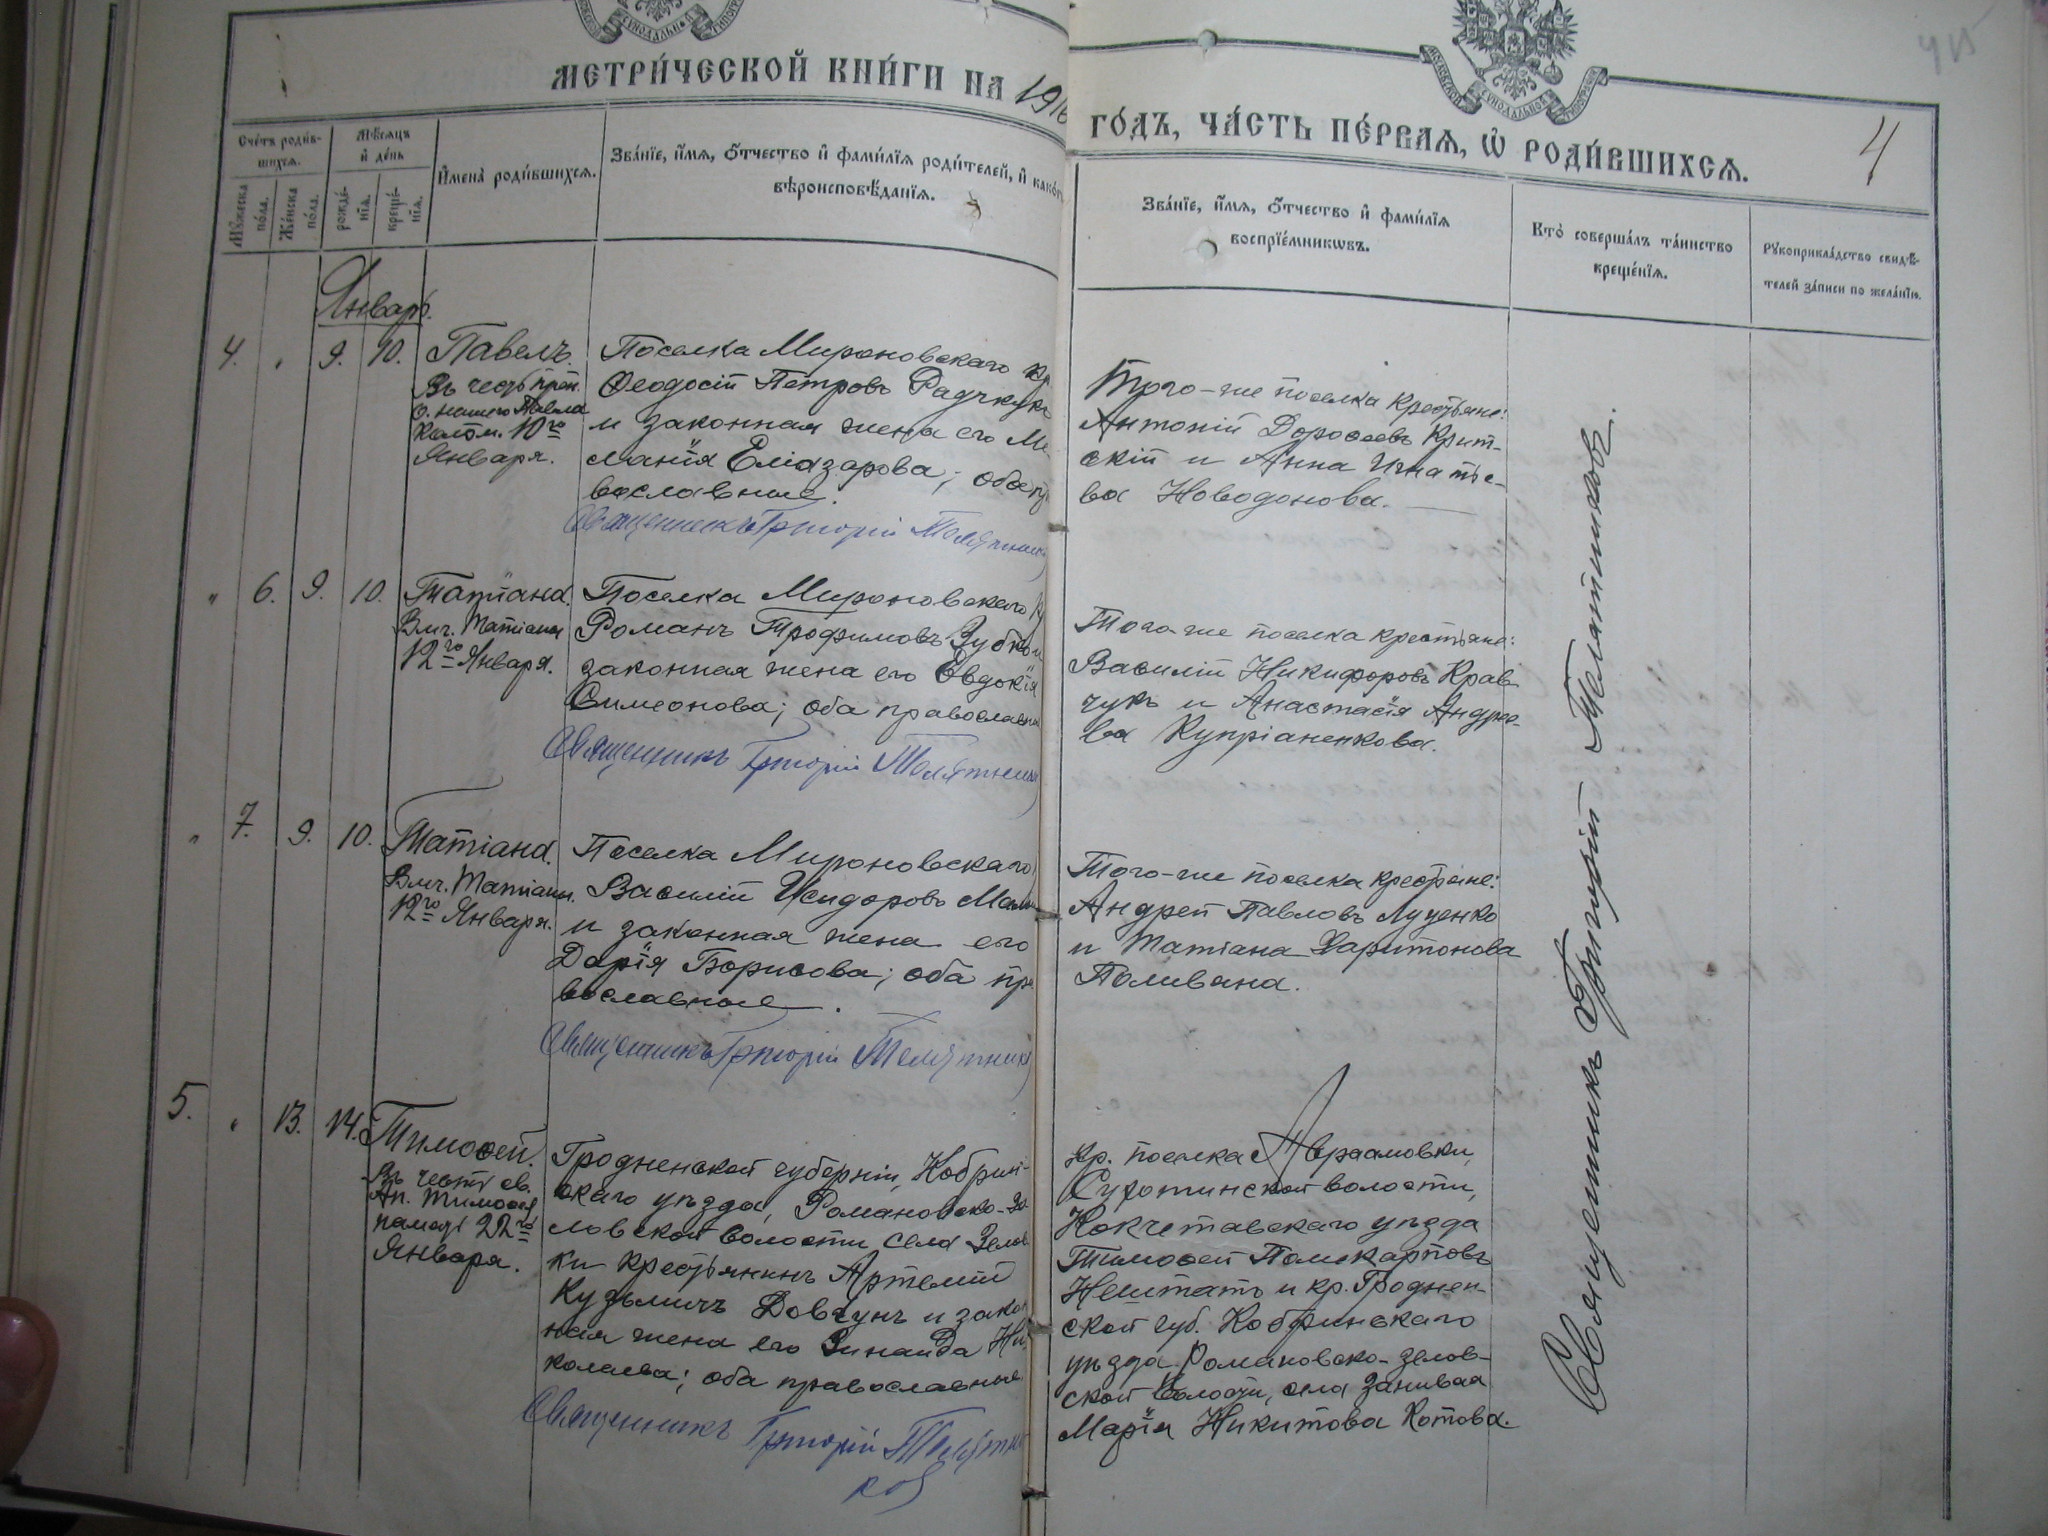 МЕТРИ́ЧЕСКОЙ КНИ́ГИ НА 1916
ГО́ДЪ, ЧА́СТЬ ПЕ́РВАЯ, Ѡ РОДИ́ВШИХСЯ.
4
Сче́тъ роди́в-
шихся.
Мѣ́сяцъ
и҆ де́нь
Мꙋ́жеска
по́ла.
Же́нска
по́ла.
рожде́-
нїя.
креще́-
нїя.
И҆мена̀ роди́вшихся.
Зва́нїе, и҆́мя, ѻ҆́тчество и҆ фами́лїя роди́телей, и҆ како́гѡ
вѣроисповѣ́данїя.
Зва́нїе, и҆́мя, ѻ҆́тчество и҆ фами́лїя
воспрїе́мникѡвъ.
Кто̀ соверша́лъ та́инство
креще́нїя.
Рꙋкоприкла́дство свидѣ́-
телей за́писи по жела́нїю.
Январь.
4. „ 9. 10. Павелъ.
Въ честь преп.
о. нашего Павла
Комел. 10го
Января.
Поселка Мироновскаго кр.
Ѳеодосій Петровъ Радчукъ
и законная жена его Ме
ланія Еліазарова; оба пр
вославные.
Священникъ Григорій Телятник
Того-же поселка крестьяне:
Антоній Дороѳеевъ Крит-
скій и Анна Игнатье-
ва Новодонова.
„ 6. 9. 10. Татіана.
Вмч. Татіаны
12го Января.
Поселка Мироновскаго кр
Романъ Трофимовъ Зубко и
законная жена его Евдокія
Симеонова; оба православн
Священникъ Григорій Телятник
Того-же поселка крестьяне:
Василій Никифоровъ Крав-
чукъ и Анастасія Андрее-
ва Купріаненкова.
„ 7. 9. 10. Татіана.
Вмч. Татіаны.
12го Января.
Поселка Мироновскаго
Василій Исидоровъ
и законная жена его
Дарія Борисова; оба пра
вославные.
Священникъ Григорій Телятник
Того-же поселка крестьяне:
Андрей Павловъ Луценко
и Татіана Харитонова
Поливана.
5. „ 13. 14. Тимоѳей.
Въ честь св.
Ап. Тимоѳея
память 22го
Января.
Гродненской губерніи, Кобрин-
скаго уѣзда, Романовско-Зе-
ловской волости, села Зелов
ки крестьянинъ Артемій
Кузьмичъ Довгунъ и закон
ная жена его Зинаида Ни
колаева; оба православные
Священникъ Григорій Телятни
ковъ
Кр. поселка Авраамовки,
Суротинской волости,
Кокчетавскаго уѣзда
Тимоѳей Поликарповъ
Нештатъ и кр. Гроднен-
ской губ. Кобринскаго
уѣзда Романовско-Зелов-
ской волости, села
Марія Никитова Котова.
Священникъ Григорій Телятниковъ.